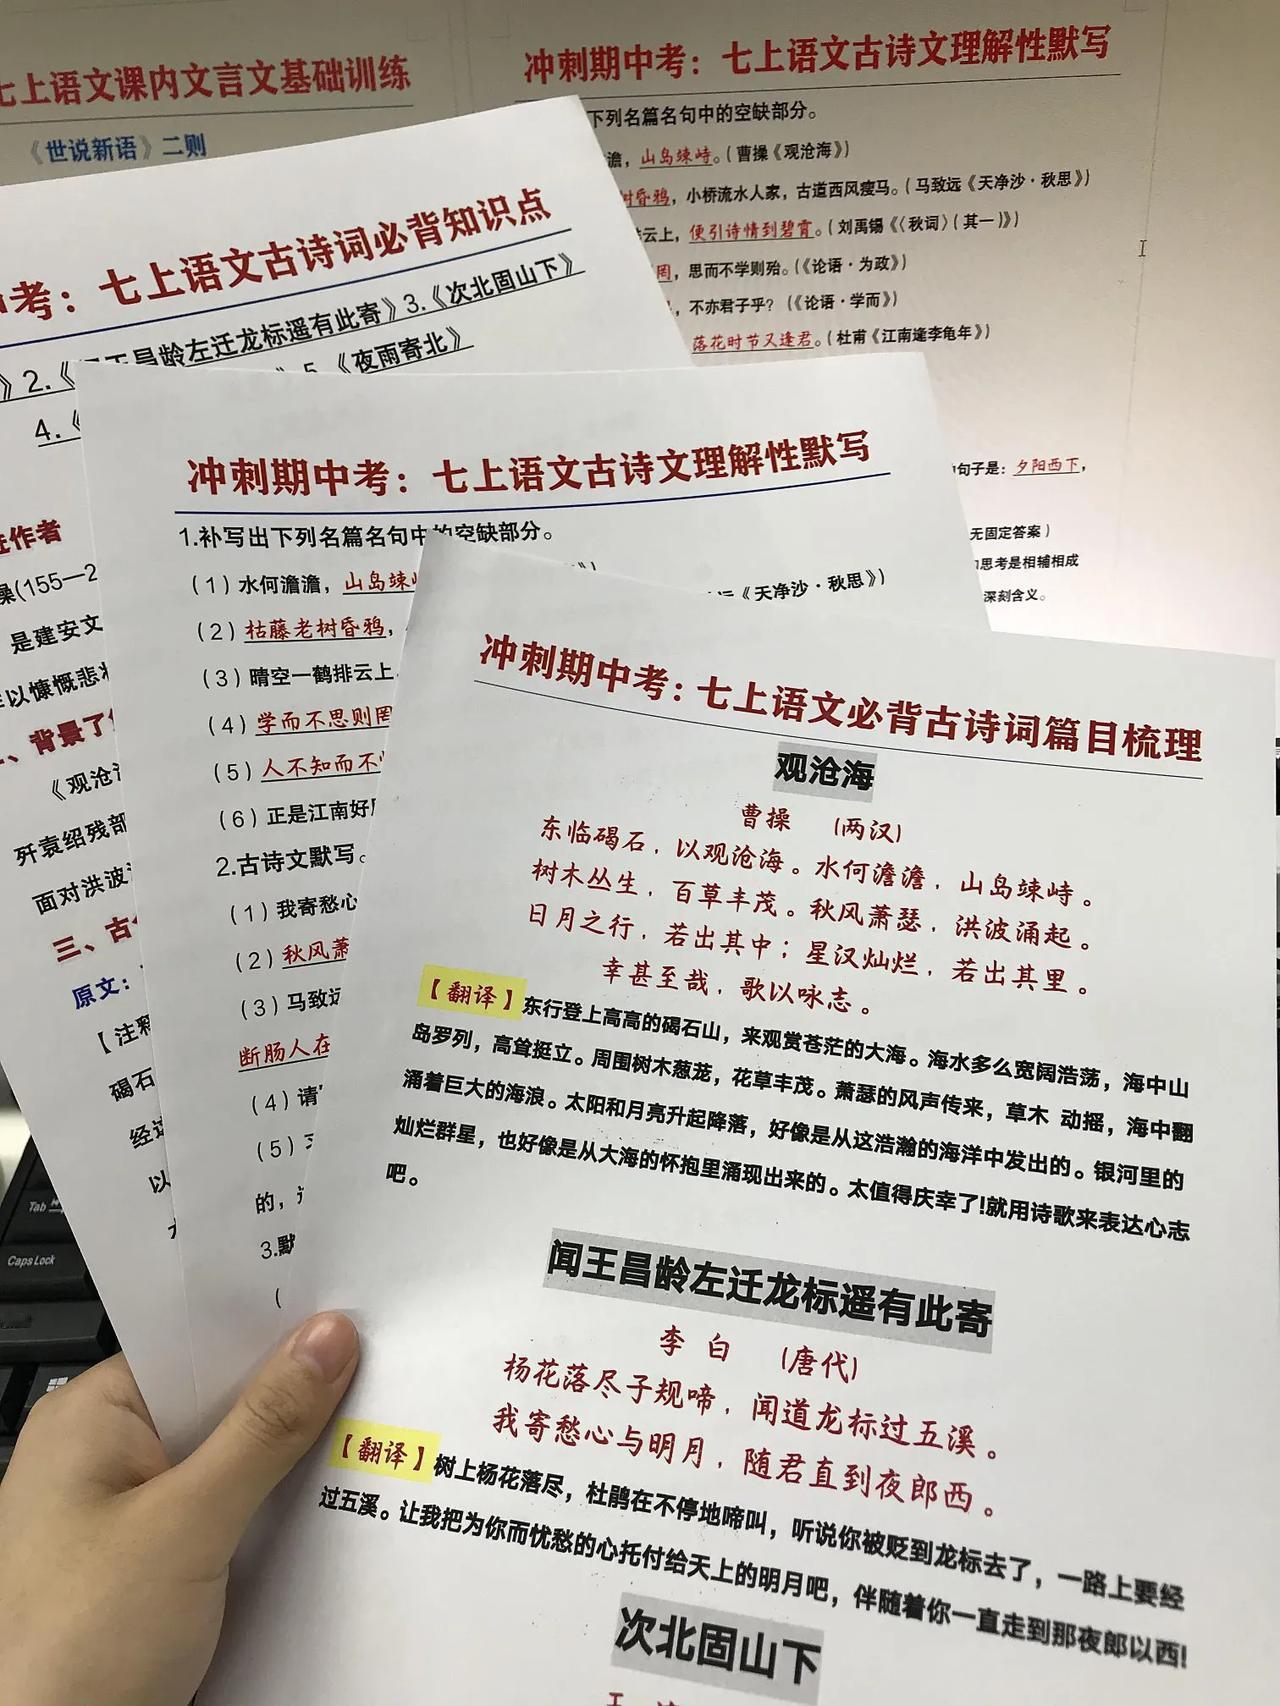 七上语文课内文言文基础训练
《世说新语》二则
冲刺期中考：七上语文古诗文理解性默写
下列名篇名句中的空缺部分。
澹，山岛竦峙。（曹操《观沧海》）
树昏鸦，小桥流水人家，古道西风瘦马。（马致远《天净沙·秋思》）
云上，便引诗情到碧霄。（刘禹锡《〈秋词〉（其一）》）
罔，思而不学则殆。（《论语·为政》）
，不亦君子乎？（《论语·学而》）
落花时节又逢君。（杜甫《江南逢李龟年》）
句子是：夕阳西下，
无固定答案）
思考是相辅相成
深刻含义。
中考：七上语文古诗词必背知识点
》2.《闻王昌龄左迁龙标遥有此寄》3.《次北固山下》
4.《 5.《夜雨寄北》
作者
操(155—2
是建安文
以慷慨悲
、背景了
《观沧
歼袁绍残部
面对洪波
三、古
原文：
【注释
碣石
经过
以
冲刺期中考：七上语文古诗文理解性默写
1.补写出下列名篇名句中的空缺部分。
（1）水何澹澹，山岛竦
（2）枯藤老树昏鸦， 《天净沙·秋思》）
（3）晴空一鹤排云上
（4）学而不思则罔
（5）人不知而不
（6）正是江南好
2.古诗文默写。
（1）我寄愁心
（2）秋风萧
（3）马致远
断肠人在
（4）请
（5）
的，
3.默
（
冲刺期中考：七上语文必背古诗词篇目梳理
观沧海
曹操 （两汉）
东临碣石，以观沧海。水何澹澹，山岛竦峙。
树木丛生，百草丰茂。秋风萧瑟，洪波涌起。
日月之行，若出其中；星汉灿烂，若出其里。
幸甚至哉，歌以咏志。
【翻译】东行登上高高的碣石山，来观赏苍茫的大海。海水多么宽阔浩荡，海中山
岛罗列，高耸挺立。周围树木葱茏，花草丰茂。萧瑟的风声传来，草木 动摇，海中翻
涌着巨大的海浪。太阳和月亮升起降落，好像是从这浩瀚的海洋中发出的。银河里的
灿烂群星，也好像是从大海的怀抱里涌现出来的。太值得庆幸了!就用诗歌来表达心志
吧。
闻王昌龄左迁龙标遥有此寄
李 白 （唐代）
杨花落尽子规啼，闻道龙标过五溪。
我寄愁心与明月，随君直到夜郎西。
【翻译】树上杨花落尽，杜鹃在不停地啼叫，听说你被贬到龙标去了，一路上要经
过五溪。让我把为你而忧愁的心托付给天上的明月吧，伴随着你一直走到那夜郎以西!
次北固山下
Tab
Caps Lock